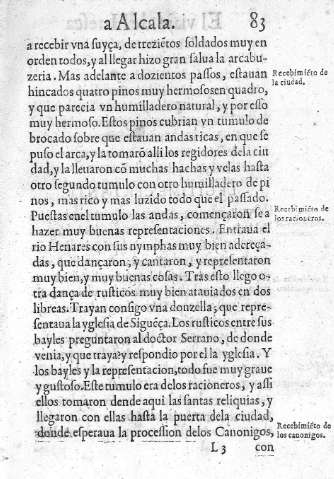 a Alcala. 83
a recebir vna suyça, de treziẽtos soldados muy en
orden todos, y al llegar hizo gran salua la arcabu-
zeria. Mas adelante a dozientos passos, estauan
hincados quatro pinos muy hermosos en quadro,
y que parecia vn humilladero natural, y por esso
muy hermoso. Estos pinos cubrian vn tumulo de
brocado sobre que estauan andas ricas, en que se
puso el arca, y la tomarõ alli los regidores dela ciu
dad, y la lleuaron cõ muchas hachas y velas hasta
otro segundo tumulo con otro humilladero de pi
nos, mas rico y mas luzido todo que el passado.
Puestas en el tumulo las andas, començaron se a
hazer muy buenas representaciones. Entraua el
rio Henares con sus nymphas muy bien adereça-
das, que dançaron, y cantaron, y representaron
muy bien, y muy buenas cosas. Tras esto llego o-
tra dança de rusticos muy bien atauiados en dos
libreas. Trayan consigo vna donzella, que repre-
sentaua la yglesia de Siguẽça. Los rusticos entre sus
bayles preguntaron al doctor Serrano, de donde
venia, y que traya? y respondio por el la yglesia. Y
los bayles y la representacion, todo fue muy graue
y gustoso. Este tumulo era delos racioneros, y assi
ellos tomaron dende aqui las santas reliquias, y
llegaron con ellas hasta la puerta dela ciudad,
donde esperaua la procession delos Canonigos,
L 3 con
Recebimiẽto de
la ciudad.
Recebimiẽto de
los racioneros.
Recebimiẽto de
los canonigos.